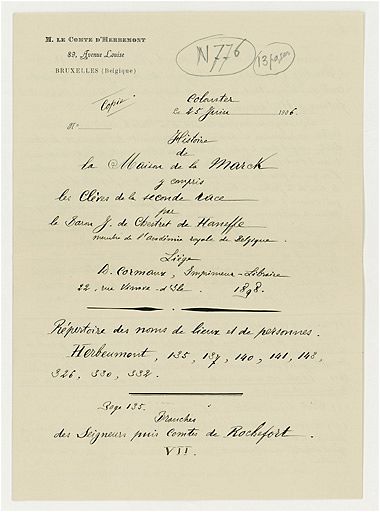 M. LE COMTE D'HERBEMONT
89, Avenue Louise
BRUXELLES (Belgique)
N 776
13 pages
Copie
Colonster
le 25 Juin 1906.
N°
Histoire
de
la Maison de la Marck
y compris
les Clèves de la seconde race
par
le Baron J. de Chestret de Haneffe
membre de l'académie royale de Belgique.
Liège
D. Cormaux, Imprimeur-Libraire
22, rue Vinave-d'Ile. 1898.
Répertoire des noms de lieux et de personnes.
Herbeumont, 135, 137, 140, 141, 143,
326, 330, 332.
Page 135.
Branches
des Seigneurs puis Comtes de Rochefort.
VII.